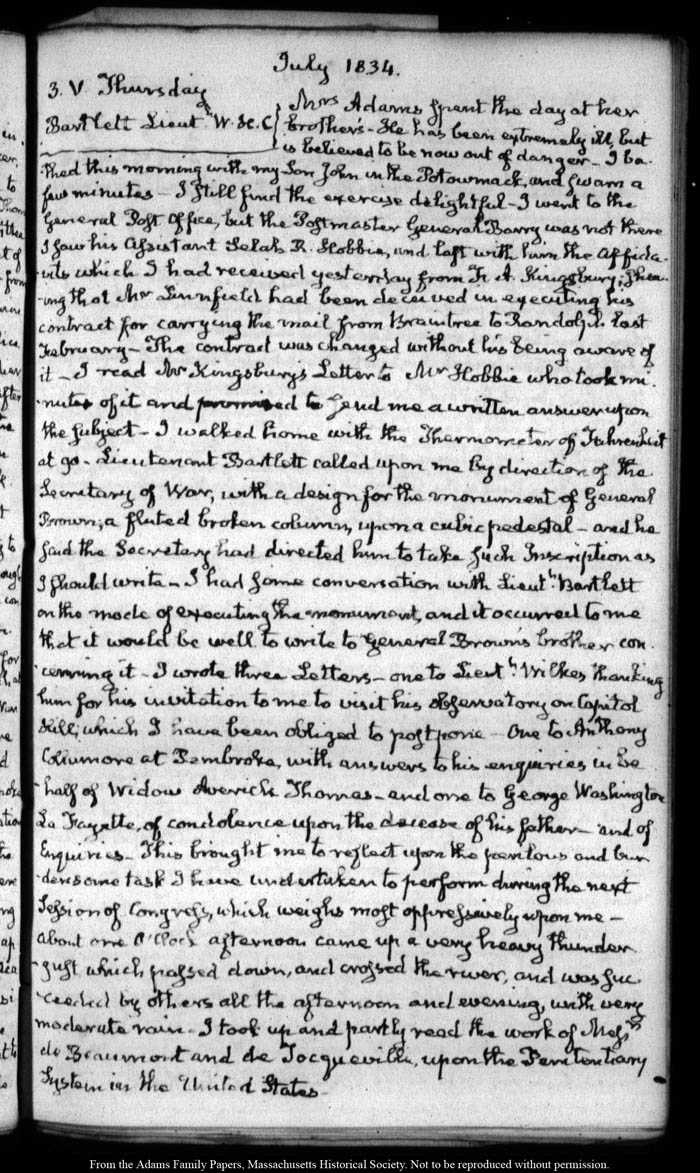 July 1834.
3. V. Thursday
Bartlett Lieut.t W. H. C.
Mrs Adams spent the day at her
brother's - He has been extremely ill, but
is believed to be now out of danger - I ba-
thed this morning with my Son John in the Potowmack, and swam a
few minutes - I still find the exercise delightful - I went to the
General Post Office, but the Postmaster General Barry was not there
I saw his Assistant Selah R. Hobbie, and left with him the Affida-
vits which I had received yesterday from Kingsbury; shew-
ing that Mr had been deceived in executing his
contract for carrying the mail from Braintree to Randolph last
February - The contract was changed without his being aware of
it - I read Mr Kingsbury's Letter to Mr Hobbie who took mi-
nutes of it and promised to send me a written answer upon
the subject - I walked home with the Thermometer of Fahrenheit
at 90. Lieutenant Bartlett called upon me by direction of the
Secretary of War, with a design for the monument of General
Brown; a fluted broken column, upon a cubic pedestal - and he
said the Secretary had directed him to take such Inscription as
I should write - I had some conversation with Lieut.t Bartlett
on the mode of executing the monument, and it occurred to me
that it would be well to write to General Brown's brother con-
cerning it - I wrote three Letters - one to Lieut.t Wilkes thanking
him for his invitation to me to visit his observatory on Capitol
Hill; which I have been obliged to postpone - One to Anthony
Collamore at Pembroke, with answers to his enquiries in be-
half of Widow Thomas - and one to George Washington
La Fayette, of condolence upon the decease of his father - and of
Enquiries - This brought me to reflect upon the perilous and bur-
densome task I have undertaken to perform during the next
Session of Congress, which weighs most oppressively upon me -
About one O'Clock afternoon came up a very heavy thunder
gust which passed down, and crossed the river, and was suc-
ceeded by others all the afternoon and evening, with very
moderate rain. I took up and partly read the work of Mess.rs
de Beaumont and de Tocqueville, upon the Penitentiary
System in the United States -
From the Adams Family Papers, Massachusetts Historical Society. Not to be reproduced without permission.